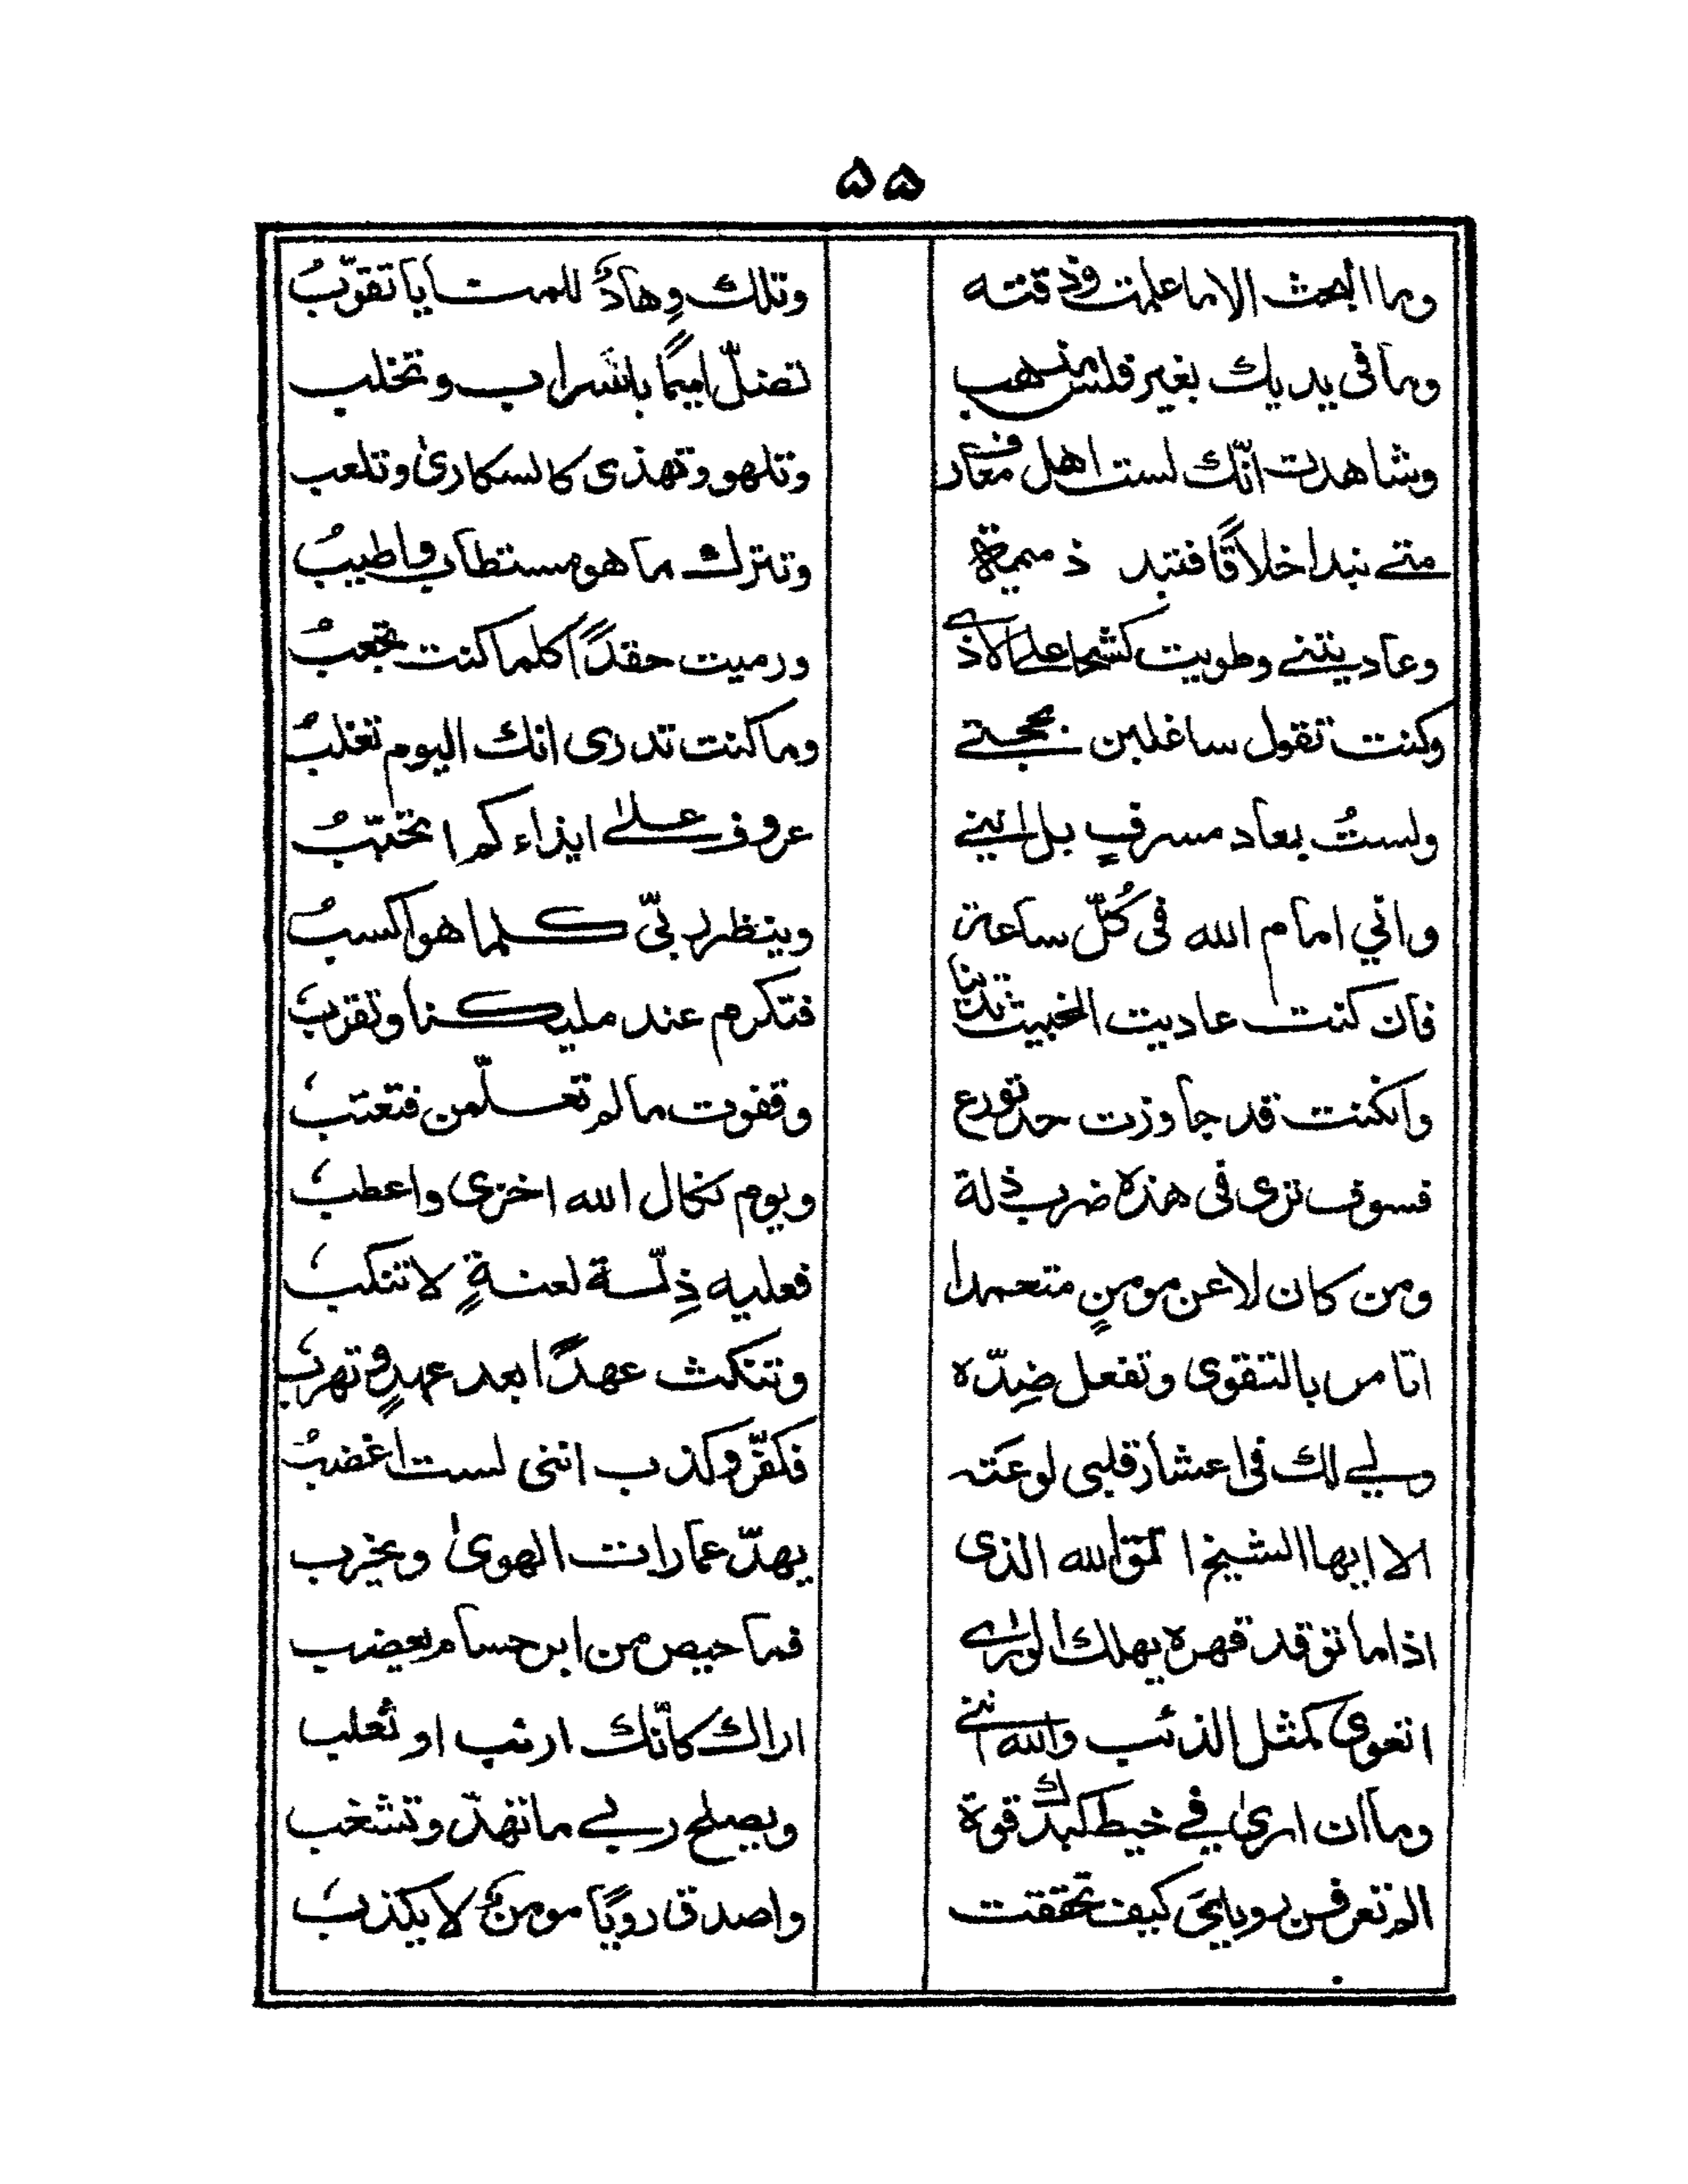 ۵۵
وما البحث الا ما علمت وذقته وتلك وِهادٌ للمنايا تقوّبُ
وما فى يديك بغير فلس منهب تضلّ اميمًا بالسّراب وتخلب
وشاهدت انّك لست اهل معارف وتلهو وتهذى كالسكارىٰ وتلعب
متے نبدا خلاقًا فتبد ذميمة وتترك ما هو مستطاب واطيبُ
وعاديتنے وطويت كشحا علے الاذے ورميت حقدًا كلما كنت تجعبُ
وكنت تقول ساغلبن بحجتے وما كنت تدرى انك اليوم تغلبُ
ولستُ بعاد مسرفٍ بل اننے عروف علےٰ ايذاءكم اتجنّبُ
واني امام الله فى كُلّ ساعة وينظر ربّي كلما هو اكسبُ
فان كنت عاديت الخبيث تدينا فتكرم عند مليكنا وتقربُ
وان كنت قد جاوزت حد تورع وقفوت ما لم تعلّمن فتعتبُ
فسوف ترى فى هذه ضرب ذلة ويوم نكال الله اخزى واعطبُ
ومن كان لاعن مومنٍ متعمدا فعليه ذِلّة لعنةٍ لا تنكبُ
اتامر بالتقوى وتفعل ضِدّه وتنكث عهدًا بعد عهدٍ وتهربُ
ولے لك فى اعشار قلبى لوعته فكفّر وكذب اننى لست اغضبُ
الا ايها الشيخ اتق الله الذى يهدّ عمارات الهوىٰ ويخرب
اذا ما توقد قهره يهلك الورٰے فما حيص من ابن حسام يعضب
اتعوى كمثل الذئب والله اننے اراك كانّك ارنب او ثعلب
وما ان ارىٰ في خيط كبدك قوة ويصلح ربے ما تهدّ وتشغب
الم تعرفن رويايَ كيف تحققت واصدق رويًا مومنٌ لا يكذبُ